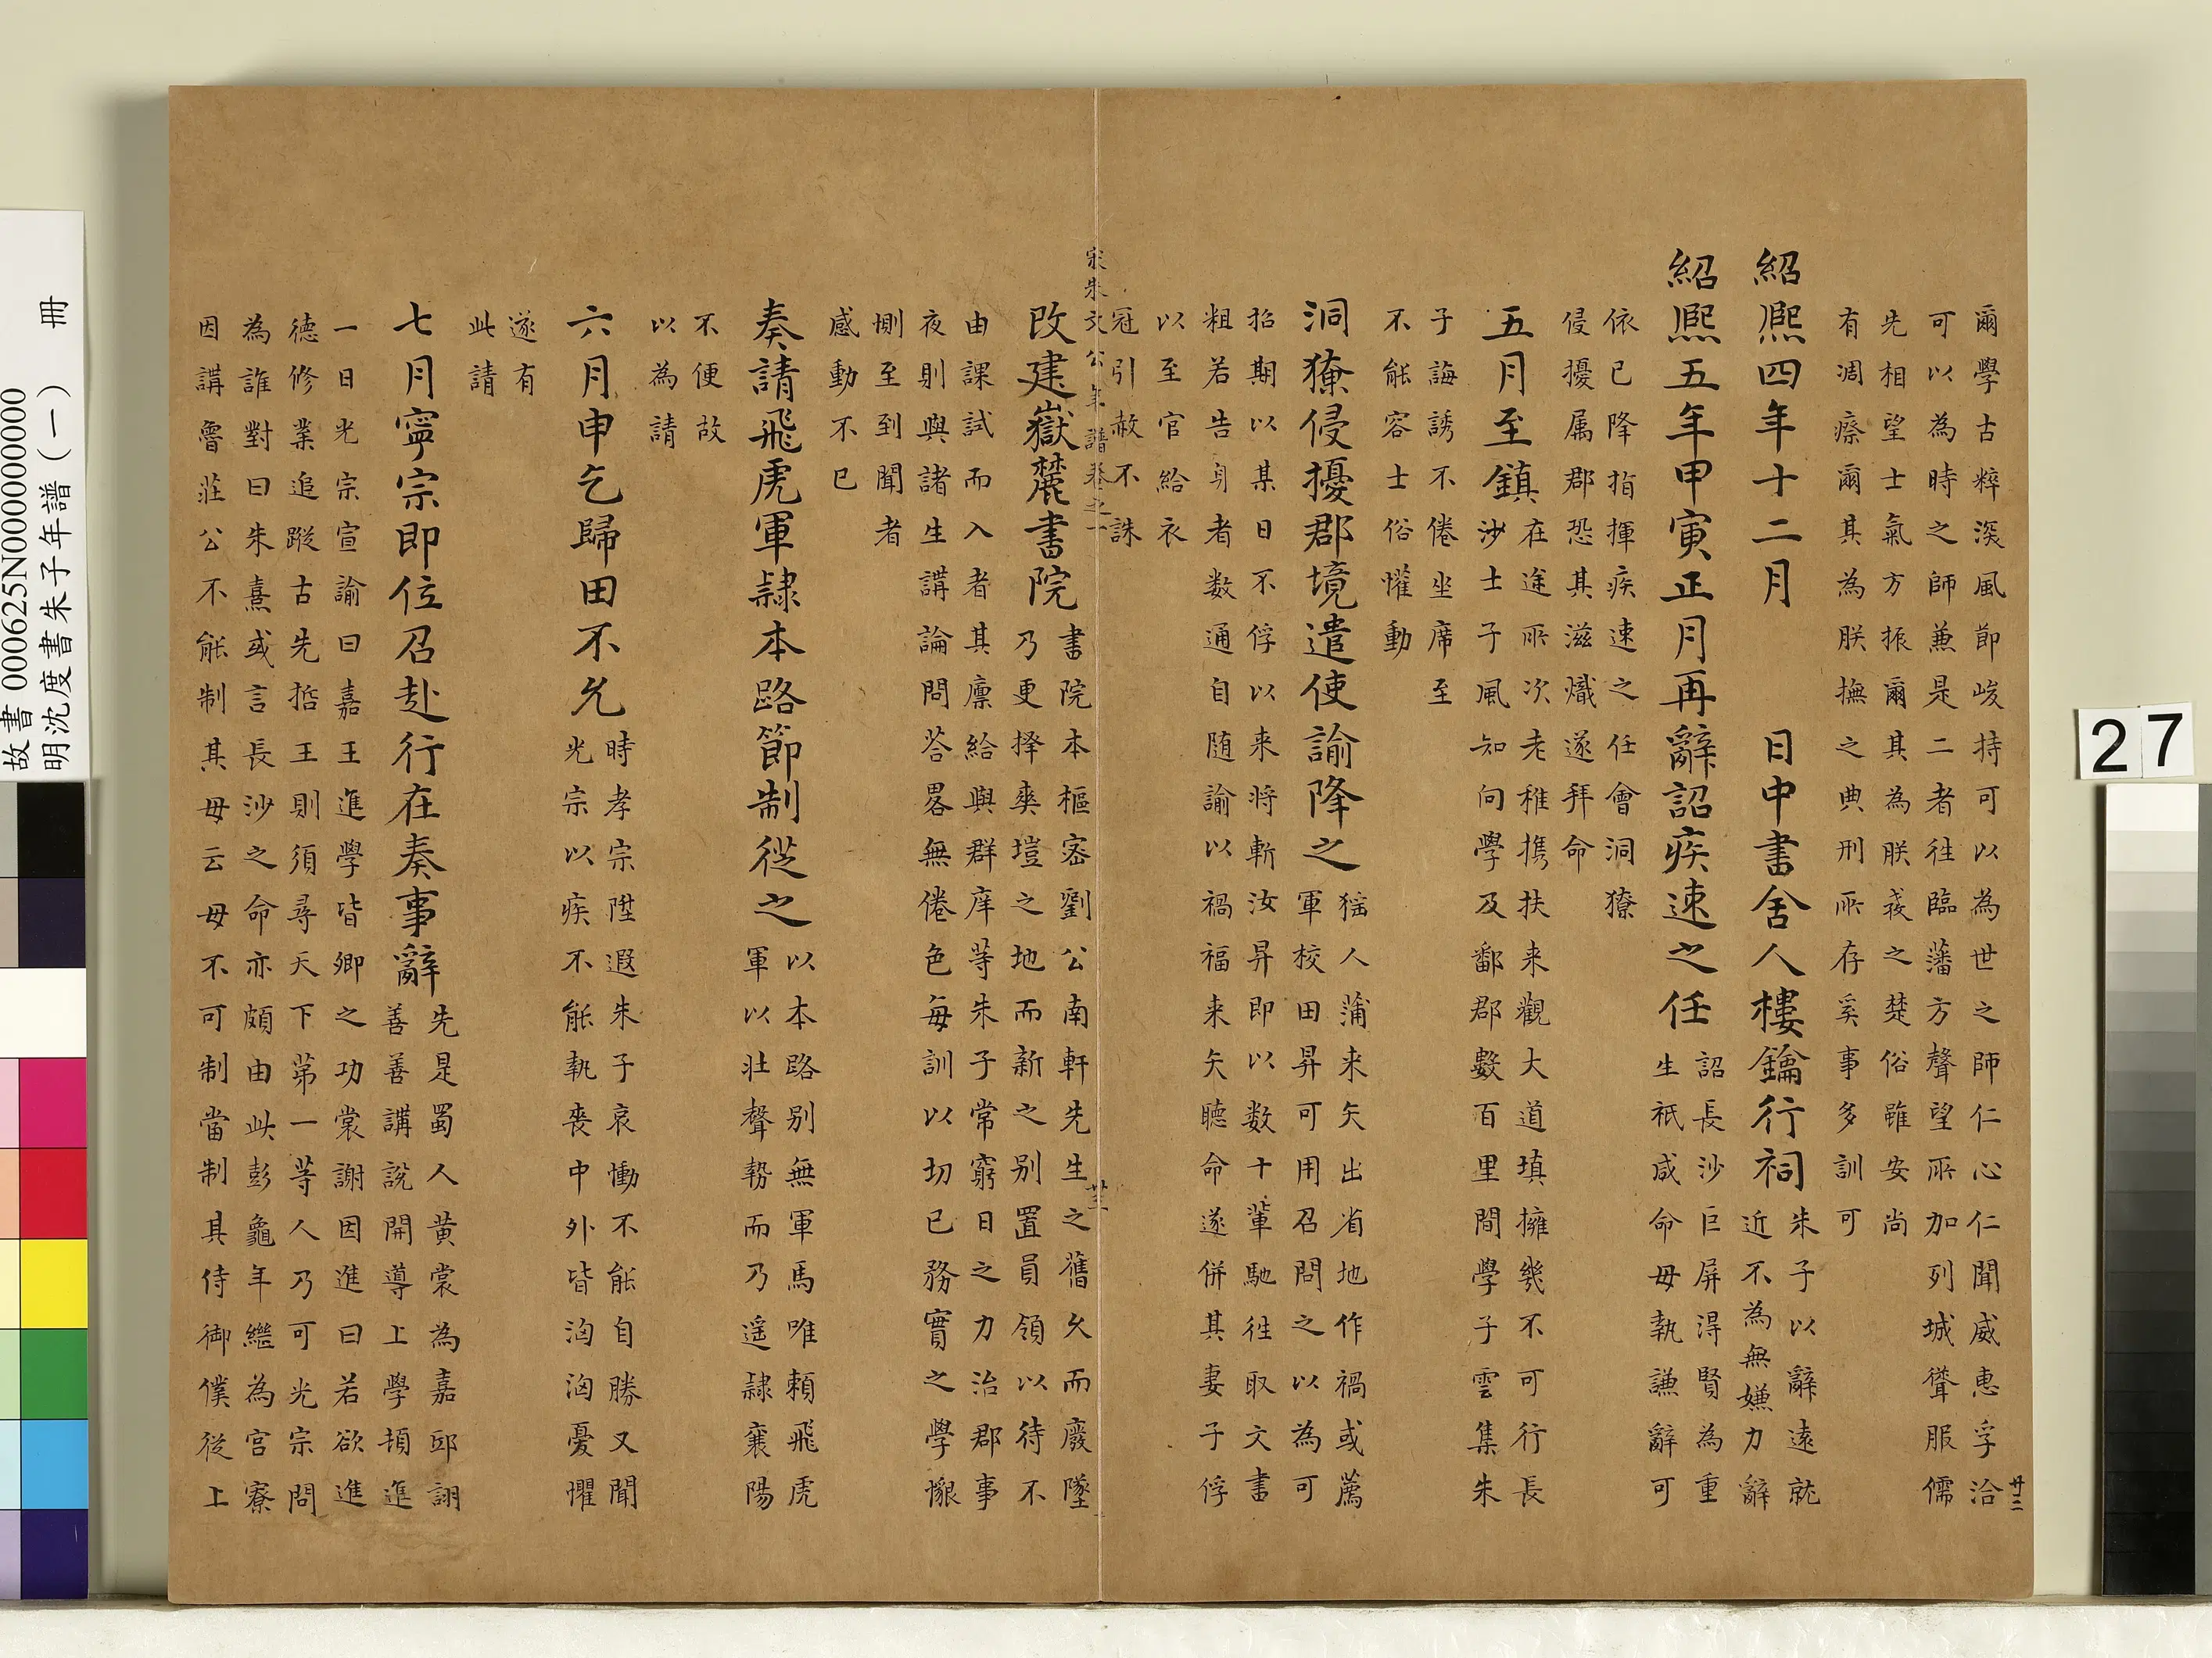 爾學古粹深風節峻持可以為世之師仁心仁聞威惠孚洽
可以為時之師兼是二者往臨藩方聲望所加列城聳服儒
先相望士氣方振爾其為朕袤之楚俗雖安尚
有凋瘵爾其為朕撫之典刑所存奚事多訓可
紹熙四年十二月 日中書舍人樓鑰行祠
朱子以辭遠就
近不為無嫌力辭
紹熙五年甲寅正月再辭詔疾速之任
詔長沙巨屏得賢為重
生祇咸命毋執謙辭可
依已降指揮疾速之任會洞獠
侵擾属郡恐其滋熾遂拜命
五月至鎮
在途所次老稚攜扶来觀大道填擁幾不可行長
沙士子風知向學及鄰郡數百里間學子雲集朱
子誨誘不倦坐席至
不能容士俗懽動
洞獠侵擾郡境遣使諭降之
猺人蒲来矢出省地作禍或薦
軍校田昇可用召問之以為可
招期以某日不俘以来将斬汝昇即以数十輩馳往取文書
粗若告身者数通自随諭以禍福来矢聽命遂併其妻子俘
以至官給衣
冠引赦不誅
宋朱文公年譜卷之一
廿三
改建嶽麓書院
書院本樞密劉公南軒先生之舊久而廢墜
乃更擇爽塏之地而新之别置員領以待不
由課試而入者其廪給與群庠等朱子常窮日之力治郡事
夜則與諸生講論問荅畧無倦色每訓以切己務實之學懇
惻至到聞者
感動不已
奏請飛虎軍隷本路節制從之
以本路别無軍馬唯頼飛虎
軍以壮聲勢而乃遥隷襄陽
不便故
以為請
六月申乞歸田不允
時孝宗陞遐朱子哀慟不能自勝又聞
光宗以疾不能執喪中外皆洶洶憂懼
遂有
此請
七月寧宗即位召赴行在奏事辭
先是蜀人黄裳為嘉邸詡
善善講說開導上學頓進
一日光宗宣諭曰嘉王進學皆卿之功裳謝因進曰若欲進
德修業追蹤古先哲王則須尋天下第一等人乃可光宗問
為誰對曰朱熹或言長沙之命亦頗由此彭龜年繼為宮寮
因講魯莊公不能制其毋云毋不可制當制其侍御僕從上
廿三
故書 000625N000000000
明沈度書朱子年譜(一) 冊
27